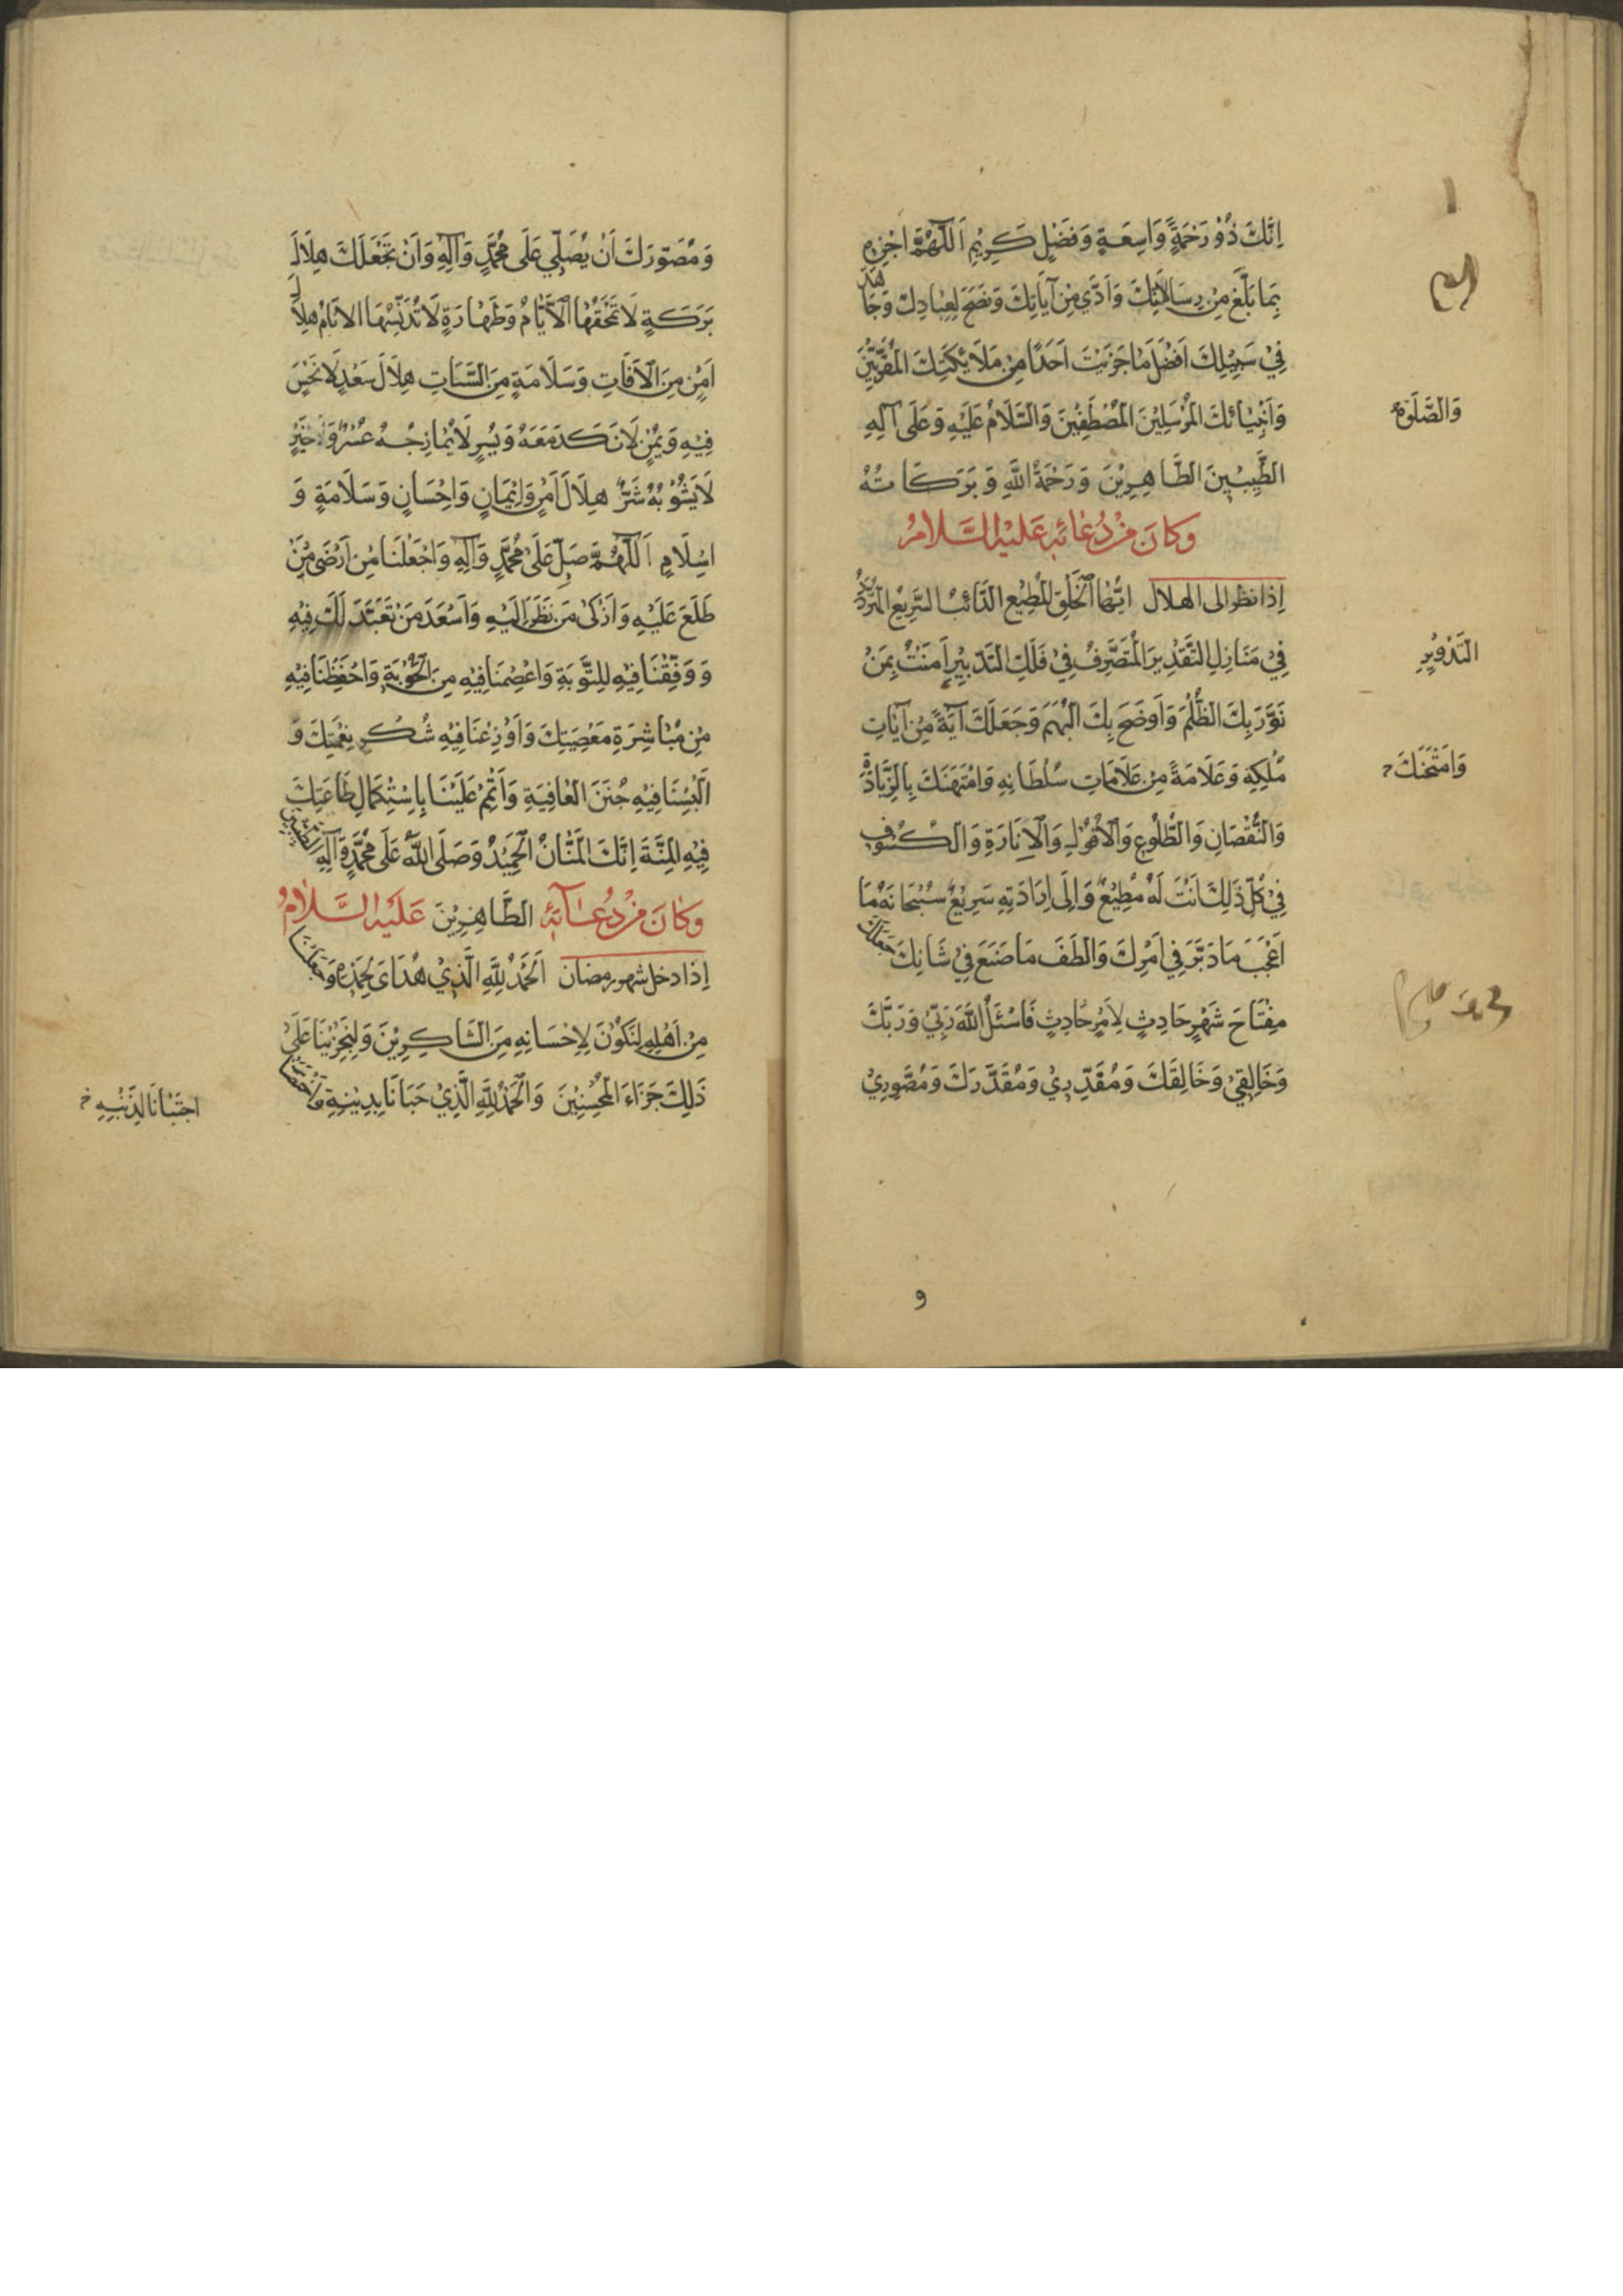 اِنَّكَ ذُوْ رَحْمَةٍ وَاسِعَةٍ وَفَضْلٍ كَرِيْمٍ اَللّٰهُمَّ اجْزِهِ
بِمَا بَلَّغَ مِنْ رِسَالَاتِكَ وَاَدّٰى مِنْ آيَاتِكَ وَنَصَحَ لِعِبَادِكَ وَجَاهَدَ
فِيْ سَبِيْلِكَ اَفْضَلَ مَا جَزَيْتَ اَحَدًا مِنْ مَلَائِكَتِكَ الْمُقَرَّبِيْنَ
وَاَنْبِيَائِكَ الْمُرْسَلِيْنَ الْمُصْطَفَيْنَ وَالسَّلَامُ عَلَيْهِ وَعَلَى آلِهِ
وَالصَّلٰوةُ
الطَّيِّبِيْنَ الطَّاهِرِيْنَ وَرَحْمَةُ اللّٰهِ وَبَرَكَاتُهُ
وَكَانَ مِنْ دُعَائِهِ عَلَيْهِ السَّلَامُ
إذا نظر الى الهلال اَيُّهَا الْخَلْقُ الْمُطِيْعُ الدَّائِبُ السَّرِيْعُ الْمُتَرَدِّدُ
فِيْ مَنَازِلِ التَّقْدِيْرِ الْمُتَصَرِّفُ فِيْ فَلَكِ التَّدْبِيْرِ اٰمَنْتُ بِمَنْ
التَّدْوِيْرِ
نَوَّرَ بِكَ الظُّلَمَ وَاَوضَحَ بِكَ الْبُهَمَ وَجَعَلَكَ آيَةً مِنْ آيَاتِ
مُلْكِهِ وَعَلَامَةً مِنْ عَلَامَاتِ سُلْطَانِهِ وَامْتَهَنَكَ بِالزِّيَادَةِ
وَامْتَحَنَكَ
وَالنُّقْصَانِ وَالطُّلُوْعِ وَالْاُفُوْلِ وَالْاِنَارَةِ وَالْكُسُوْفِ
فِيْ كُلِّ ذٰلِكَ اَنْتَ لَهُ مُطِيْعٌ وَاِلَى اِرَادَتِهِ سَرِيْعٌ سُبْحَانَهُ مَا
اَعْجَبَ مَا دَبَّرَ فِي اَمْرِكَ وَالْطَفَ مَا صَنَعَ فِيْ شَانِكَ جَعَلَكَ
مِفْتَاحَ شَهْرٍ حَادِثٍ لِاَمْرٍ حَادِثٍ فَاَسْئَلُ اللّٰهَ رَبِّيْ وَرَبَّكَ
وَخَالِقِيْ وَخَالِقَكَ وَمُقَدِّرِيْ وَمُقَدِّرَكَ وَمُصَوِّرِيْ
و
وَمُصَوِّرَكَ اَنْ يُصَلِّيَ عَلَى مُحَمَّدٍ وَآلِهِ وَاَنْ يَجْعَلَكَ هِلَالَ
بَرَكَةٍ لَا تَمْحَقُهَا الْاَيَّامُ وَطَهَارَةٍ لَا تُدَنِّسُهَا الْاٰثَامُ هِلَالَ
اَمْنٍ مِنَ الْاٰفَاتِ وَسَلَامَةٍ مِنَ السَّيِّاٰتِ هِلَالَ سَعْدٍ لَا نَحْسَ
فِيْهِ وَيُمْنٍ لَا نَكَدَ مَعَهُ وَيُسْرٍ لَا يُمَازِجُهُ عُسْرٌ وَخَيْرٍ
لَا يَشُوْبُهُ شَرٌّ هِلَالَ اَمْنٍ وَاِيْمَانٍ وَاِحْسَانٍ وَسَلَامَةٍ وَ
اِسْلَامٍ اَللّٰهُمَّ صَلِّ عَلَى مُحَمَّدٍ وَآلِهِ وَاجْعَلْنَا مِنْ اَرْضَى مَنْ
طَلَعَ عَلَيْهِ وَاَزْكٰى مَنْ نَظَرَ اِلَيْهِ وَاَسْعَدَ مَنْ تَعَبَّدَ لَكَ فِيْهِ
وَوَفِّقْنَا فِيْهِ لِلتَّوْبَةِ وَاعْصِمْنَا فِيْهِ مِنَ الْحَوْبَةِ وَاحْفَظْنَا فِيْهِ
مِنْ مُبَاشَرَةِ مَعْصِيَتِكَ وَاَوْزِعْنَا فِيْهِ شُكْرَ نِعْمَتِكَ وَ
اَلْبِسْنَا فِيْهِ جُنَنَ الْعَافِيَةِ وَاَتْمِمْ عَلَيْنَا بِاِسْتِكْمَالِ طَاعَتِكَ
فِيْهِ الْمِنَّةَ اِنَّكَ الْمَنَّانُ الْحَمِيْدُ وَصَلَّى اللّٰهُ عَلَى مُحَمَّدٍ وَآلِهِ الطَّيِّبِيْنَ
وَكَانَ مِنْ دُعَآئِهِ الطَّاهِرِيْنَ عَلَيْهِ السَّلَامُ
إذا دخل شهر رمضان اَلْحَمْدُ لِلّٰهِ الَّذِيْ هَدَانَا لِحَمْدِهِ وَجَعَلَنَا
مِنْ اَهْلِهِ لِنَكُوْنَ لِاِحْسَانِهِ مِنَ الشَّاكِرِيْنَ وَلِيَجْزِيَنَا عَلَى
ذٰلِكَ جَزَاءَ الْمُحْسِنِيْنَ وَالْحَمْدُ لِلّٰهِ الَّذِيْ حَبَانَا بِدِيْنِهِ وَاخْتَصَّنَا